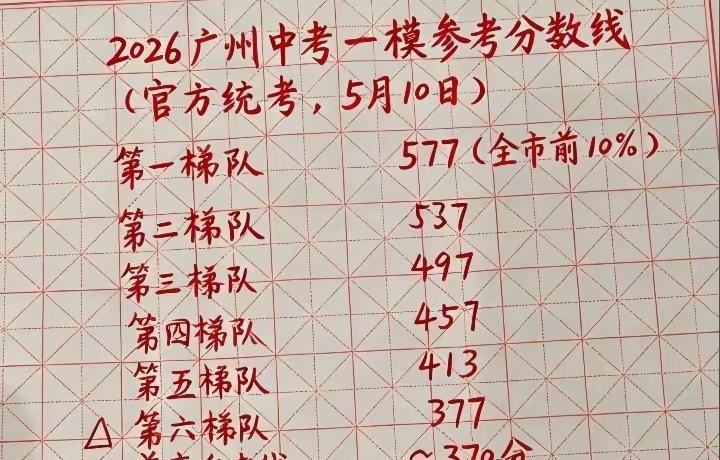 2026广州中考一模参考分数线
(官方统考，5月10日)
第一梯队 577(全市前10%)
第二梯队 537
第三梯队 497
第四梯队 457
第五梯队 413
△ 第六梯队 377
~370分